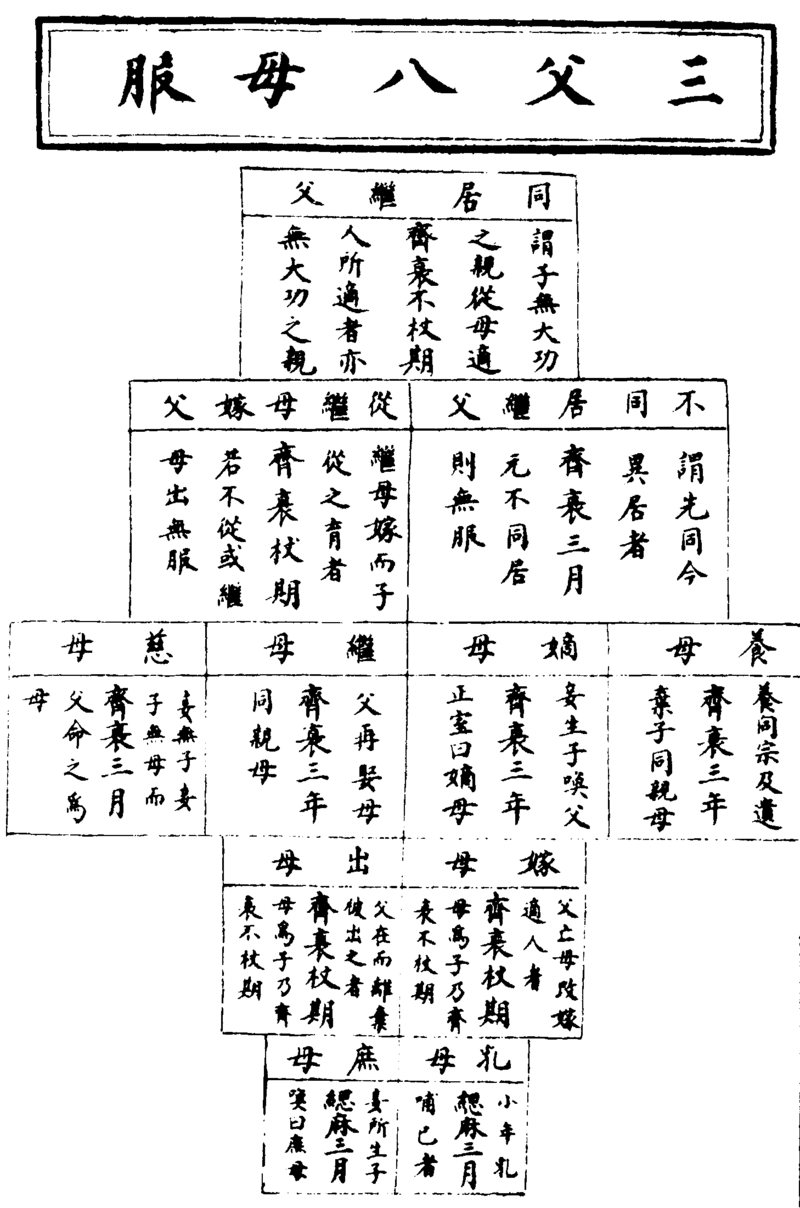 三父八母服
同居繼父
謂子無大功
之親從母適
齊衰不杖期
人所適者亦
無大功之親
不同居繼父
謂先同今
異居者
齊衰三月
元不同居
則無服
從繼母嫁父
繼母嫁而子
從之育者
齊衰杖期
若不從或繼
母出無服
養母
養同宗及遺
齊衰三年
棄子同親母
嫡母
妾生子喚父
齊衰三年
正室曰嫡母
繼母
父再娶母
齊衰三年
同親母
慈母
妾無子妾
子無母而
齊衰三月
父命之為
母
嫁母
父亡母改嫁
適人者
齊衰杖期
母為子乃齊
衰不杖期
出母
父在而離棄
彼出之者
齊衰杖期
母為子乃齊
衰不杖期
乳母
小年乳
緦麻三月
哺己者
庶母
妾所生子
緦麻三月
喚曰庶母